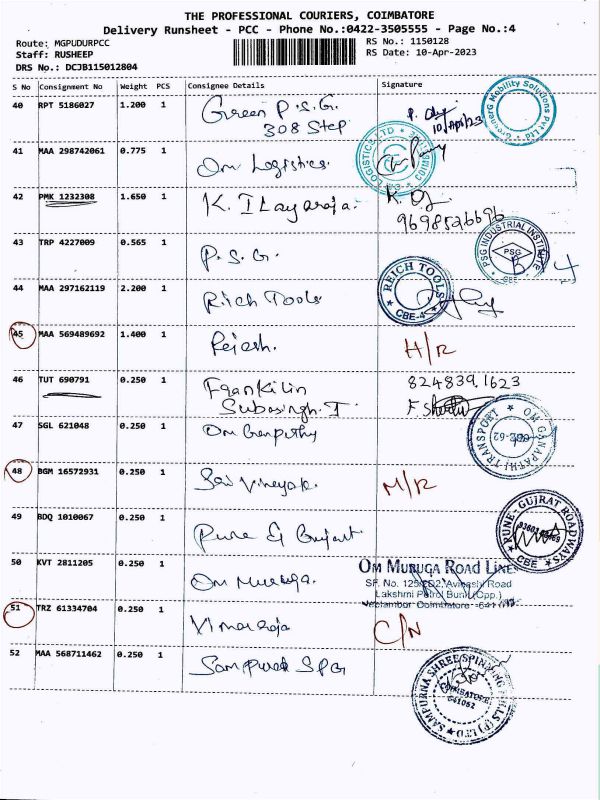 THE PROFESSIONAL COURIERS, COIMBATORE
Delivery Runsheet - PCC - Phone No.:0422-3505555 - Page No.:4
Route: MGPUDURPCC
RS No.: 1150128
Staff: RUSHEEP
RS Date: 10-Apr-2023
DRS No.: DCJB115012804
S No Consignment No Weight PCS Consignee Details Signature
40 RPT 5186027 1.200 1 Green P.S.G.
308 Step
10/Apr/23
GreenerG Mobility Solutions Pvt Ltd
41 MAA 298742061 0.775 1 Om Logistics.
LOGISTICS LTD
42 PMK 1232308 1.650 1 K. Ilayaraja.
9698526696
43 TRP 4227009 0.565 1 P.S.G.
PSG INDUSTRIAL INSTITUTE
PSG
CBE
44 MAA 297162119 2.200 1 Rich Tools
REICH TOOLS
CBE-4
45 MAA 569489692 1.400 1 Rejesh. H/R
46 TUT 690791 0.250 1 Frankilin
Subasingh.T
8248391623
47 SGL 621048 0.250 1 Om Ganpathy
OM GANAPATHI TRANSPORT
48 BGM 16572931 0.250 1 Sai Vineyak. M/R
49 BDQ 1010067 0.250 1 Pune & Gujart
PUNE-GUJRAT ROADWAYS
CBE
50 KVT 2811205 0.250 1 Om Muruga.
OM MURUGA ROAD LINES
SF. No. 125/ED2, Avinasly Road
Lakshmi Petrol Bunk (Opp.)
Coimbatore - 641
51 TRZ 61334704 0.250 1 Vimalraja C/N
52 MAA 568711462 0.250 1 Sampurna SPG
SAMPURNA SHREE SPINNING MILLS (P) LTD
COIMBATORE
641062